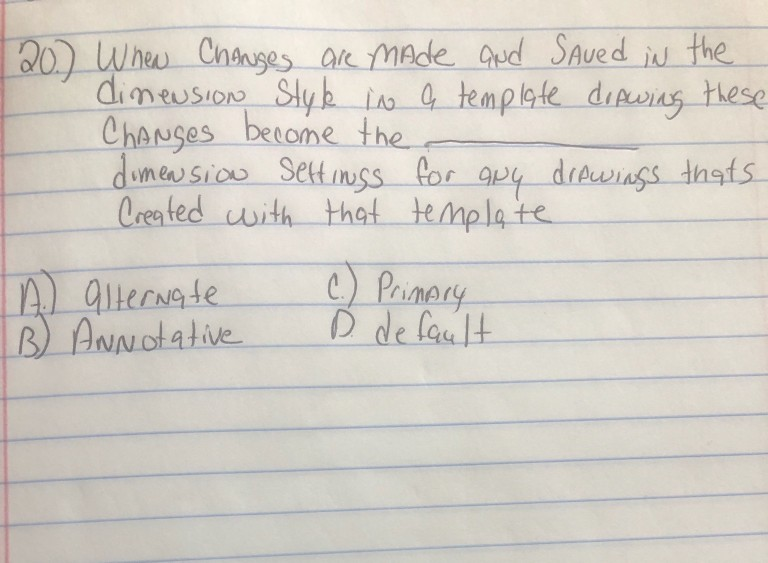 20.) When Changes are MAde and SAved in the
dimension Style in a template drAwing these
ChANges become the ____________
dimension Settings for any drAwings thats
Created with that template
A.) alternate C.) PrimAry
B) ANNotative D. default